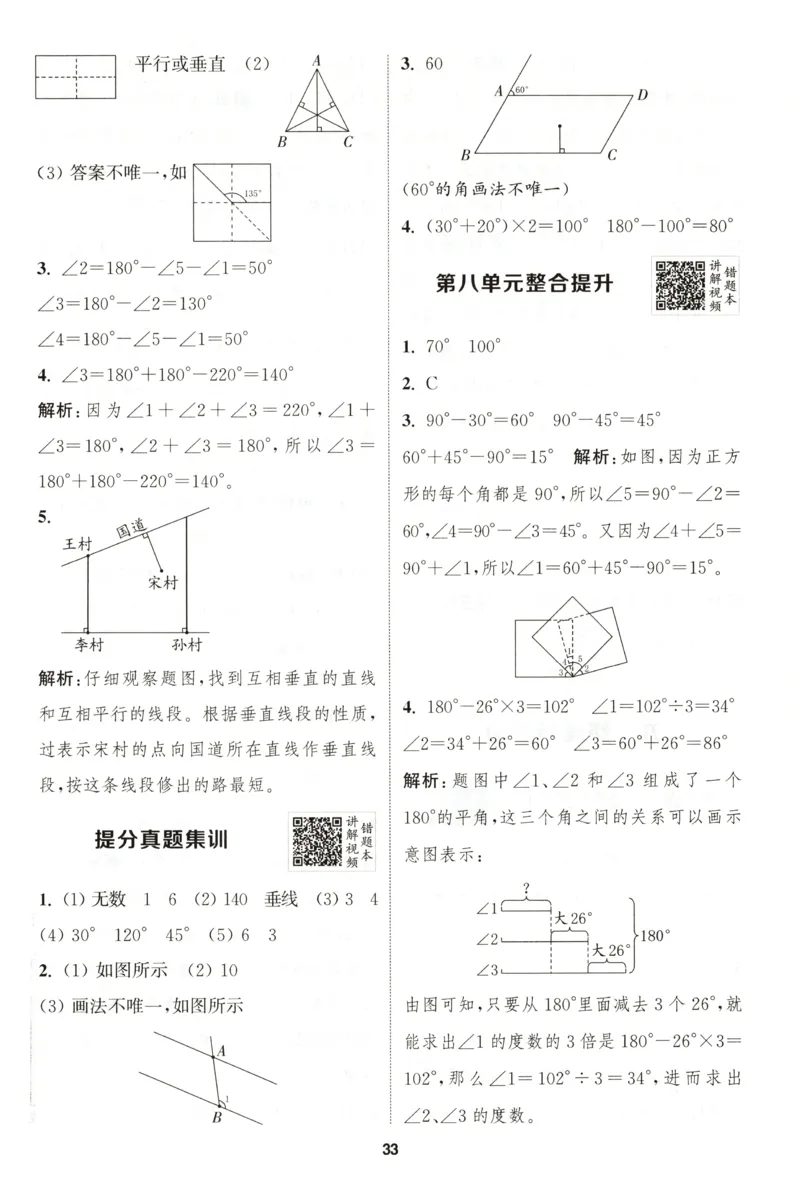 平行或垂直 (2)
A
B C
(3) 答案不唯一,如
135°
3. ∠2=180°-∠5-∠1=50°
∠3=180°-∠2=130°
∠4=180°-∠5-∠1=50°
4. ∠3=180°+180°-220°=140°
解析:因为∠1+∠2+∠3=220°,∠1+
∠3=180°,∠2+∠3=180°,所以∠3=
180°+180°-220°=140°。
5.
国道
王村
宋村
李村 孙村
解析:仔细观察题图,找到互相垂直的直线
和互相平行的线段。根据垂直线段的性质,
过表示宋村的点向国道所在直线作垂直线
段,按这条线段修出的路最短。
提分真题集训
讲解视频
错题本
1. (1) 无数 1 6 (2) 140 垂线 (3) 3 4
(4) 30° 120° 45° (5) 6 3
2. (1) 如图所示 (2) 10
(3) 画法不唯一,如图所示
A
1
B
3. 60
A 60° D
B C
(60°的角画法不唯一)
4. (30°+20°)×2=100° 180°-100°=80°
第八单元整合提升
讲解视频
错题本
1. 70° 100°
2. C
3. 90°-30°=60° 90°-45°=45°
60°+45°-90°=15° 解析:如图,因为正方
形的每个角都是 90°,所以∠5=90°-∠2=
60°,∠4=90°-∠3=45°。又因为∠4+∠5=
90°+∠1,所以∠1=60°+45°-90°=15°。
4 1 5
3 2
4. 180°-26°×3=102° ∠1=102°÷3=34°
∠2=34°+26°=60° ∠3=60°+26°=86°
解析:题图中∠1、∠2 和∠3 组成了一个
180°的平角,这三个角之间的关系可以画示
意图表示:
?
∠1
大26°
∠2
180°
大26°
∠3
由图可知,只要从 180°里面减去 3 个 26°,就
能求出∠1 的度数的 3 倍是 180°-26°×3=
102°,那么∠1=102°÷3=34°,进而求出
∠2、∠3 的度数。
33